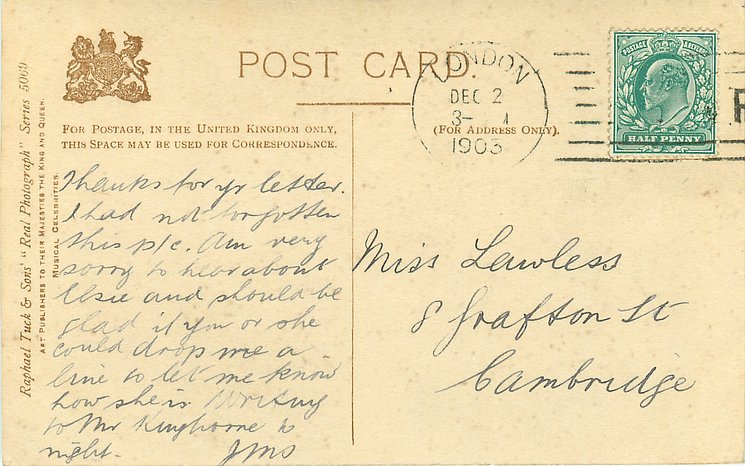 POST CARD.
FOR POSTAGE, IN THE UNITED KINGDOM ONLY,
THIS SPACE MAY BE USED FOR CORRESPONDENCE.
(FOR ADDRESS ONLY).
LONDON
DEC 2
3-
1903
POSTAGE
HALF PENNY
Raphael Tuck & Sons' "Real Photograph" Series 5069
ART PUBLISHERS TO THEIR MAJESTIES THE KING AND QUEEN.
MUSICAL CELEBRITIES.
Thanks for yr letter.
I had not forgotten
this p/c. Am very
sorry to hear about
Elsie and should be
glad if you or she
could drop me a
line to let me know
how she is. Writing
to Mr Kinghorne to
night.
JMS
Miss Lawless
8 Grafton St
Cambridge